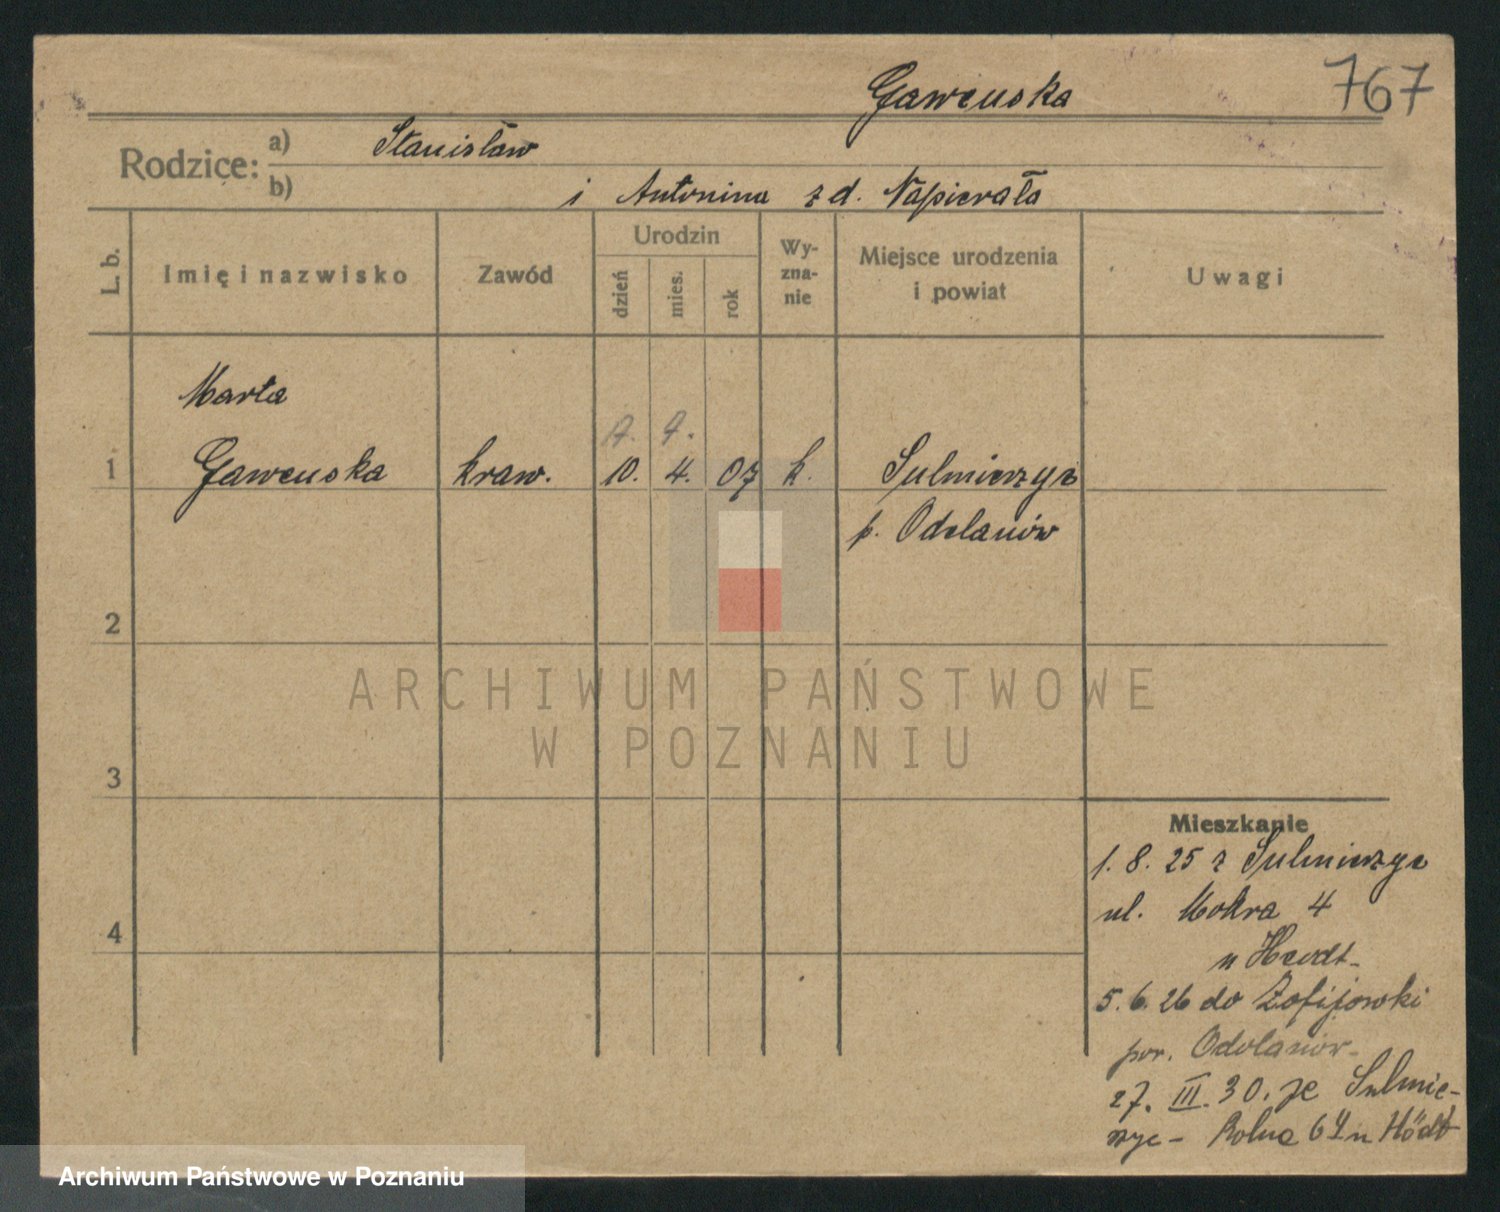 767
Gawenska
Rodzice: a) Stanisław
b) i Antonina z d. Napierała
L. b. Imię i nazwisko Zawód Urodzin dzień mies. rok Wyznanie Miejsce urodzenia i powiat Uwagi
Marta
7. 7.
1 Gawenska kraw. 10. 4. 07 k. Sulmierzyce
p. Odolanów
2
ARCHIWUM PAŃSTWOWE
W POZNANIU
3
4
Mieszkanie
1. 8. 25 z Sulmierzyc
ul. Mokra 4
u Heidt
5. 6. 26 do Zofijowki
pow. Odolanów
27. III. 30. ze Sulmie-
rzyc - Rolna 64 u Hödt
Archiwum Państwowe w Poznaniu